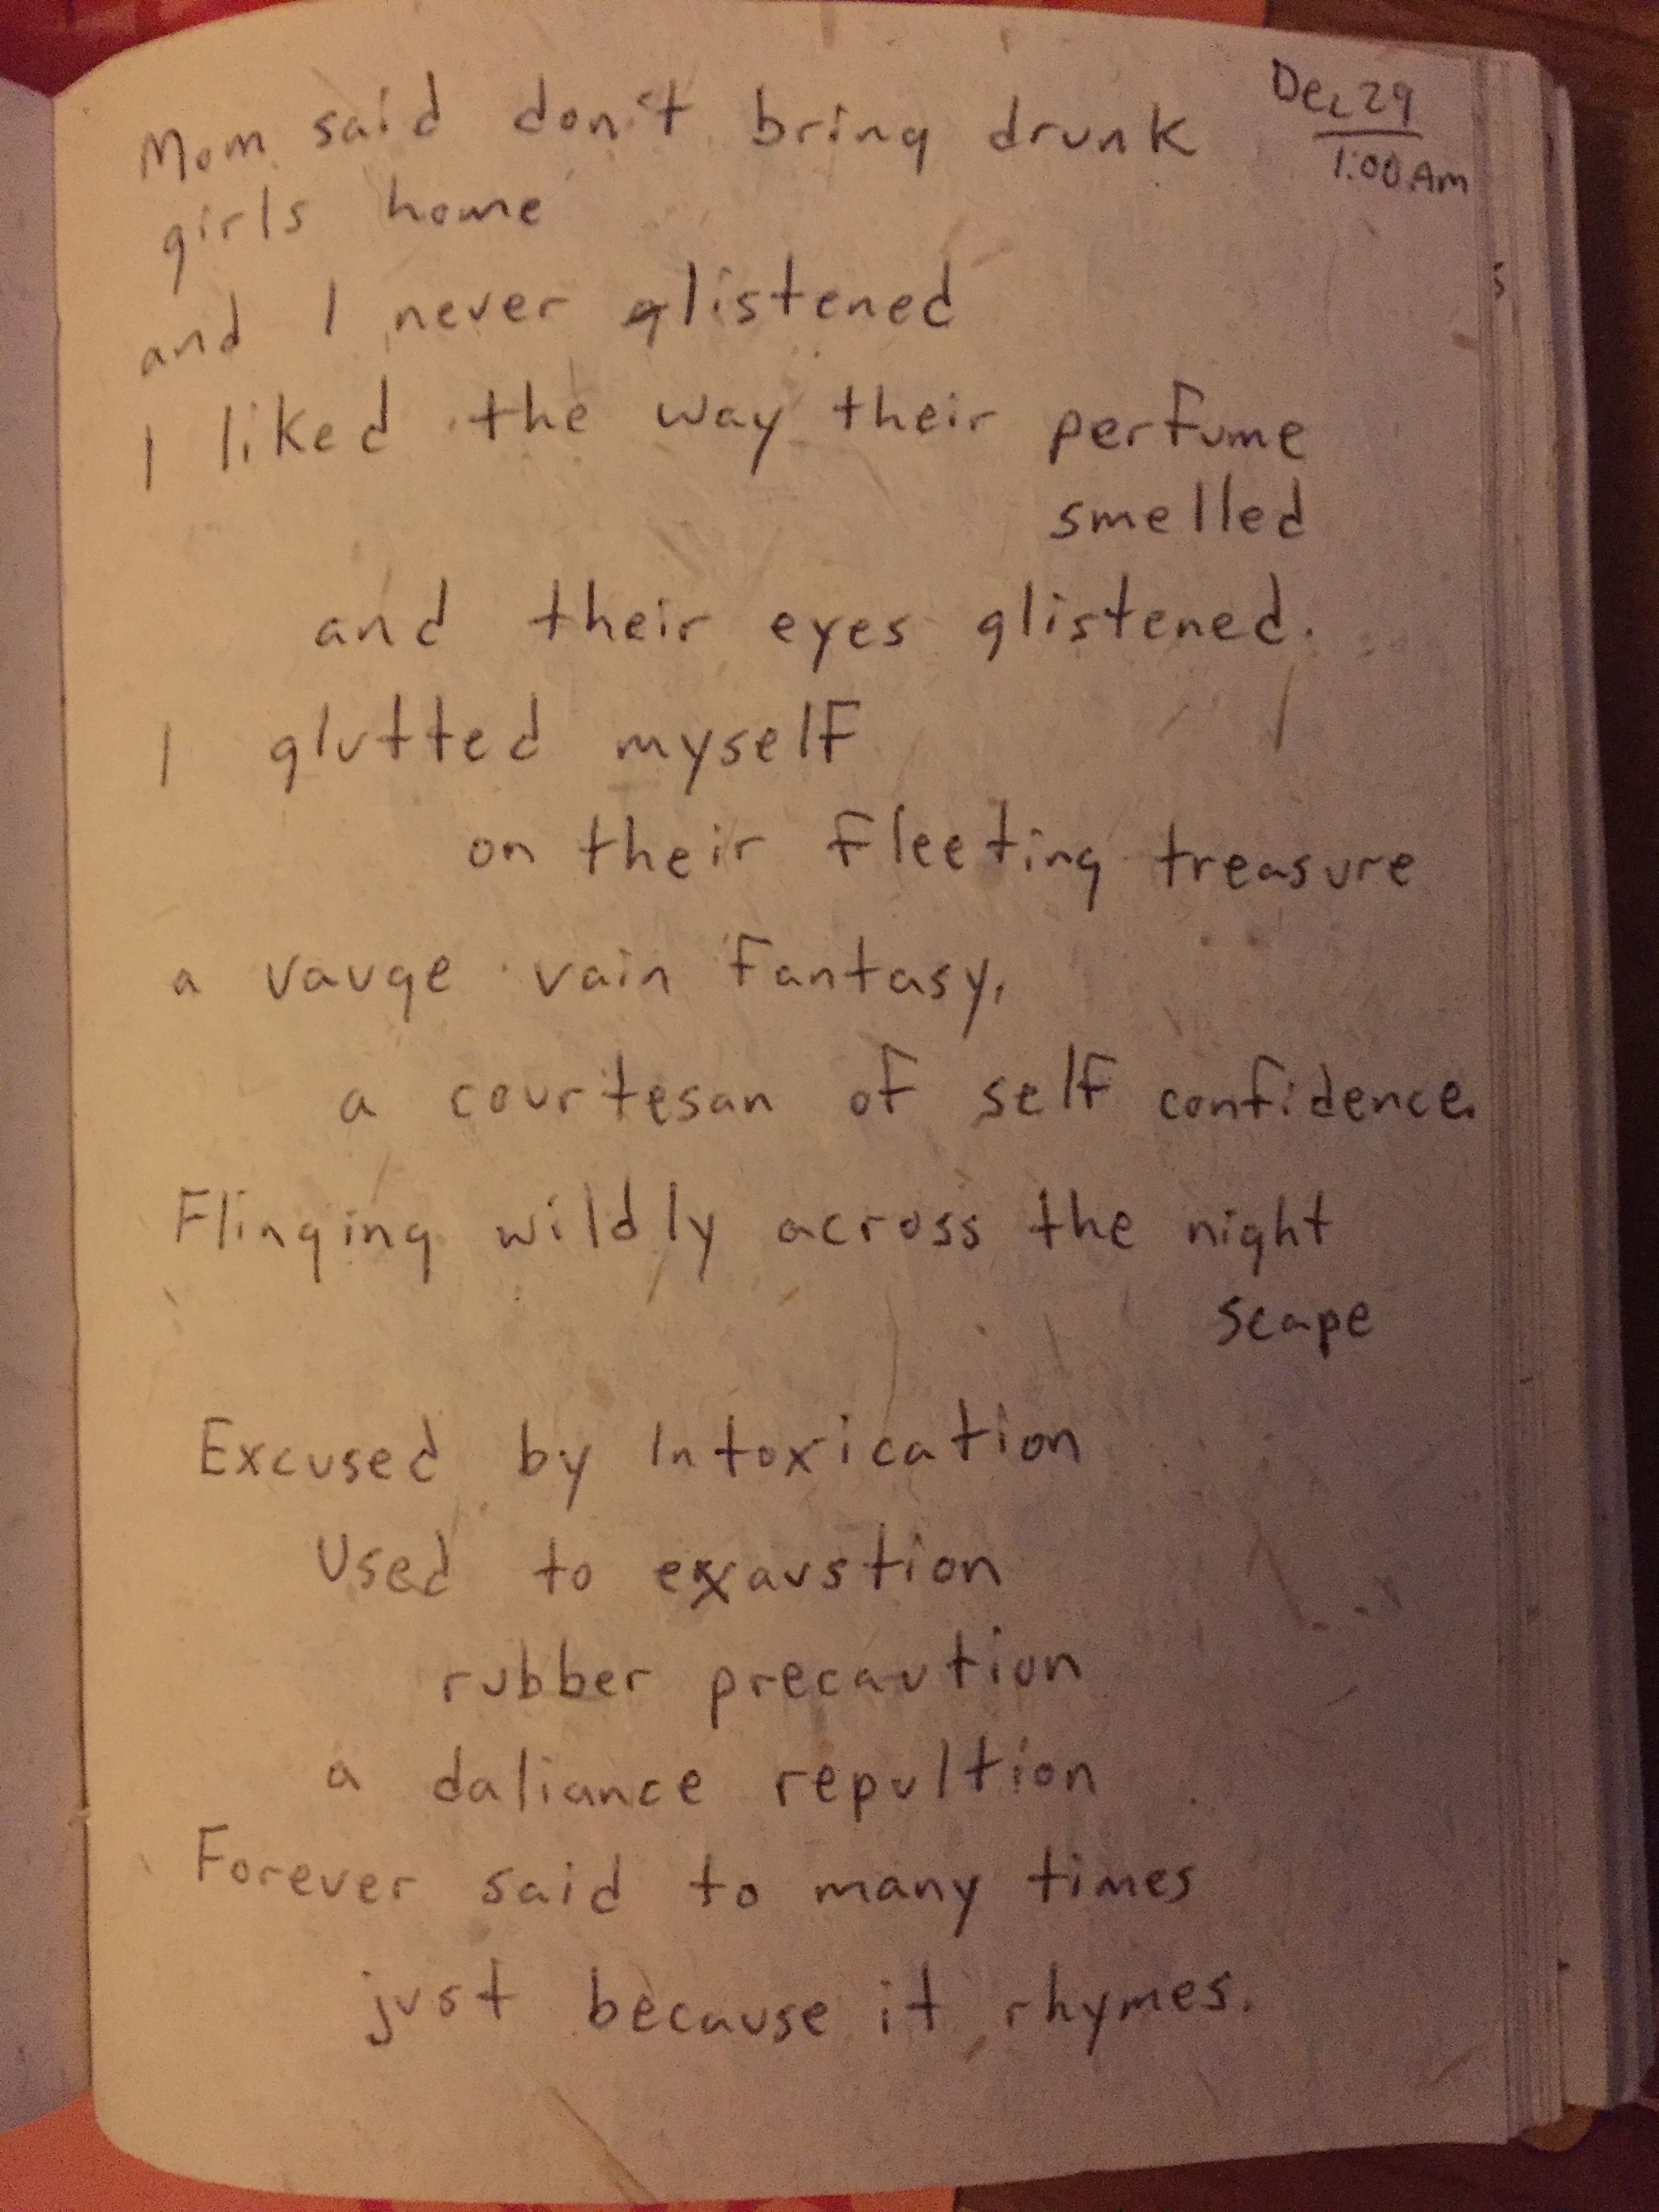 Mom said don't bring drunk
Dec 29
1:00 Am
girls home
and I never glistened
I liked the way their perfume
smelled
and their eyes glistened.
I glutted myself
on their fleeting treasure
a vauge vain fantasy,
a courtesan of self confidence.
Flinging wildly across the night
scape
Excused by Intoxication
Used to exaustion
rubber precaution
a daliance repultion
Forever said to many times
just because it rhymes.